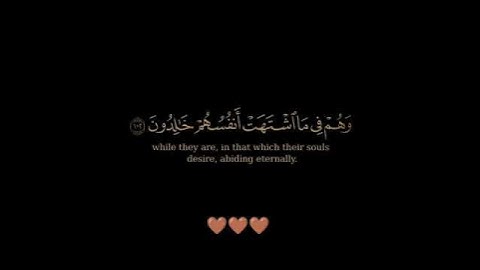 وَهُمْ فِي مَا ٱشْتَهَتْ أَنفُسُهُمْ خَـٰلِدُونَ ١٠٢
while they are, in that which their souls
desire, abiding eternally.